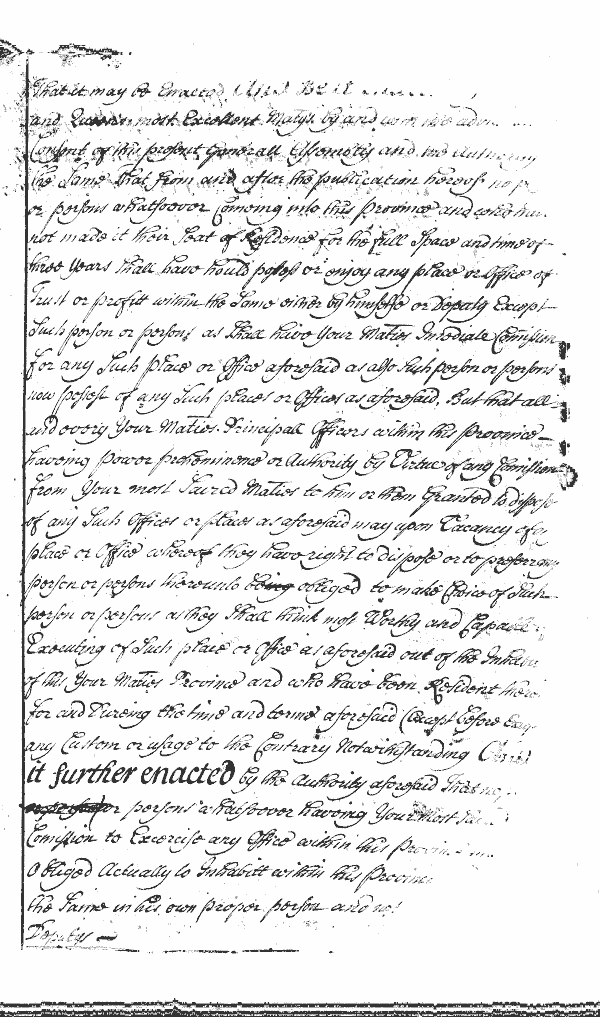 That it may be Enacted And Be it
and Queen's most Excellent Matys by and
Consent of this present Generall Assembly and the Authority
the Same That from and after the publication hereof no
or persons whatsoever Comeing into this Province and who
not made it their Seat of Residence for the full Space and time of
three Years Shall have hould posess or enjoy any place or Office of
Trust or profitt within the Same either by himselfe or Deputy Except
Such person or persons as Shall have Your Maties Imediate Comission
for any Such place or Office aforesaid as also Such person or persons
now posest of any Such places or Offices as aforesaid, But that all
and every Your Maties Principall Officers within this province
haveing power preheminence or Authority by Virtue of any Comission
from Your most Sacred Maties to him or them Granted to dispose
of any Such Offices or places as aforesaid may upon Vacancy of
place or Office whereof they have right to dispose or to preferr any
person or persons thereunto being obliged to make Choice of Such
person or persons as they Shall think most Worthy and Capable
Executing of Such place or Office as aforesaid out of the
of this Your Maties Province and who have been Resident there
for and Dureing the time and terme aforesaid (Except before
any Custom or usage to the Contrary Notwithstanding
it further enacted by the Authority aforesaid That no
or persons whatsoever haveing Your most
Comission to Exercise any Office within this
Obliged Actually to Inhabitt within this Province
the Same in his own proper person and not
Deputys